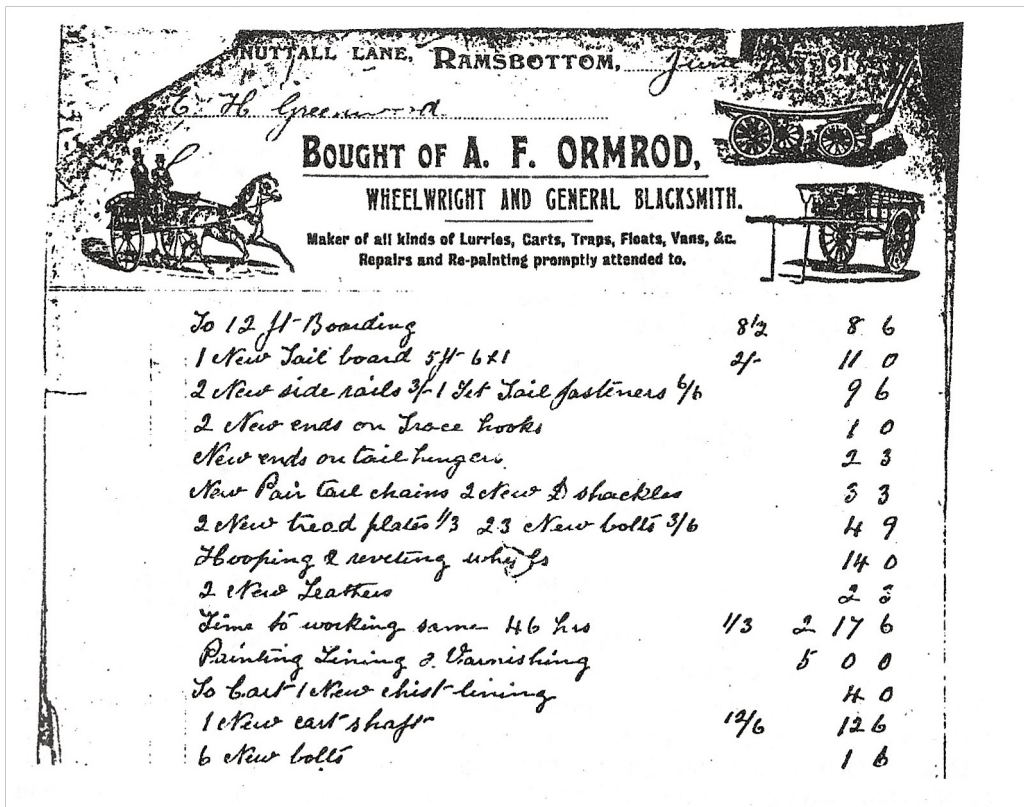 NUTTALL LANE, RAMSBOTTOM, June 191
E. H. Greenwood
BOUGHT OF A. F. ORMROD,
WHEELWRIGHT AND GENERAL BLACKSMITH.
Maker of all kinds of Lurries, Carts, Traps, Floats, Vans, &c.
Repairs and Re-painting promptly attended to.
To 12 ft Boarding 8½ 8 6
1 New Tail board 5 ft 6 x 1 2/- 11 0
2 New side rails 3/- 1 Set Tail fasteners 6/6 9 6
2 New ends on Trace hooks 1 0
New ends on tail hinges 2 3
New Pair tail chains 2 New D shackles 3 3
2 New tread plates 1/3 23 New bolts 3/6 4 9
Hooping & reveting 14 0
2 New Leathers 2
Time to working same 46 hrs 1/3 2 17 6
Painting Lining & Varnishing 5 0 0
To Cart 1 New chist lining 4 0
1 New cart shaft 12/6 12 6
6 New bolts 1 6